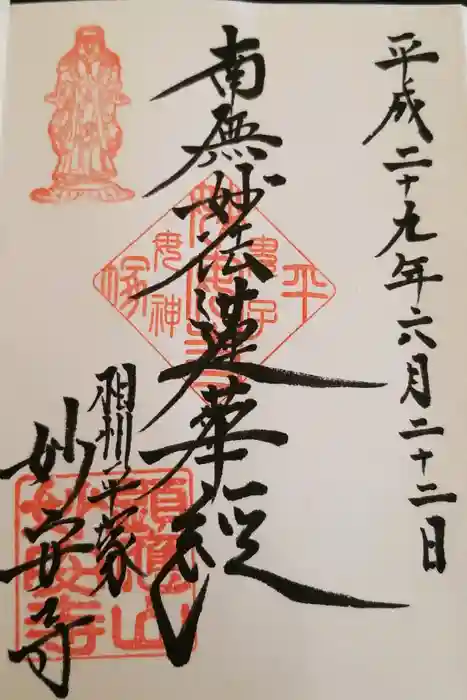 平成二十九年六月二十二日
南無妙法蓮華経
相州平塚
妙安寺